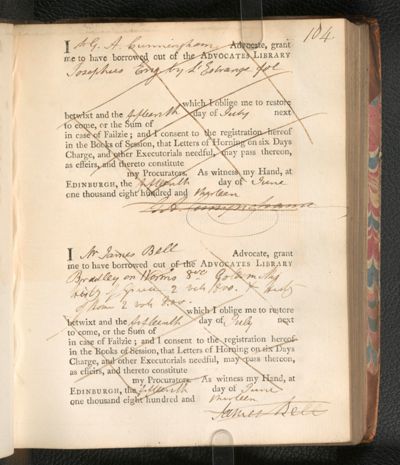 104.
I G. A. Cunningham Advocate, grant
me to have borrowed out of the ADVOCATES LIBRARY
Josephus Eng. by L'Estrange fol
which I oblige me to restore
betwixt and the fifteenth day of July next
to come, or the Sum of
in case of Failzie ; and I consent to the registration hereof
in the Books of Session, that Letters of Horning on six Days
Charge, and other Executorials needful, may pass thereon,
as effeirs, and thereto constitute
my Procurators. As witness my Hand, at
EDINBURGH, the fifteenth day of June
one thousand eight hundred and thirteen
G A Cunninghame
I Mr James Bell Advocate, grant
me to have borrowed out of the ADVOCATES LIBRARY
Bradley on Worms 8vo Goldsmiths
Histy of Greece 2 vols 8vo. & Histy
of Rome 2 vols 8vo.
which I oblige me to restore
betwixt and the fifteenth day of July next
to come, or the Sum of
in case of Failzie ; and I consent to the registration hereof
in the Books of Session, that Letters of Horning on six Days
Charge, and other Executorials needful, may pass thereon,
as effeirs, and thereto constitute
my Procurators. As witness my Hand, at
EDINBURGH, the fifteenth day of June
one thousand eight hundred and thirteen
James Bell